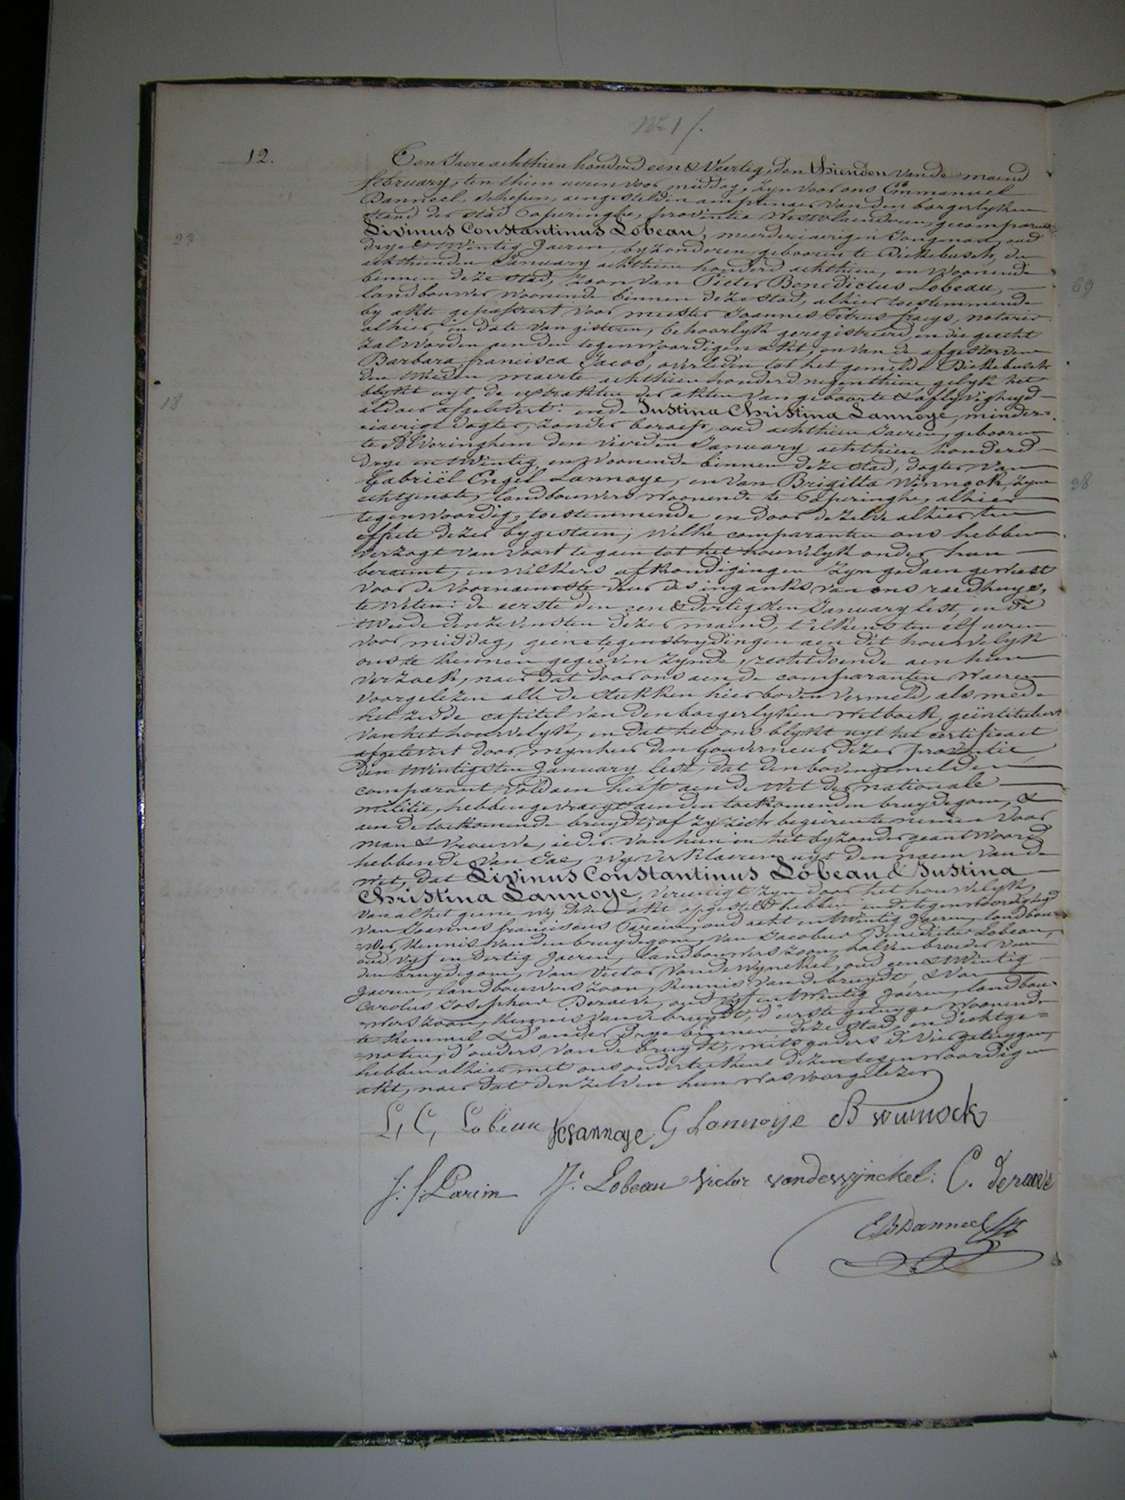 12.
Een Jaere achthien honderd een & Veertig, den thienden van de maend
february, ten thien ueren voor middag, zyn voor ons Emmanuel
Danneel, schepen, aengestelden amptenaer van den borgerlyken
stand der stad Poperinghe, provintie Westvlaenderen, gecompareerd
Livinus Constantinus Lobeau, meerderjaerigen Jongman, oud
drye & twintig Jaeren, byzonderen, gebooren te Dickebusch, den
achthienden January achthien honderd achthien, en Woonende
binnen deze stad, zoon van Pieter Benedictus Lobeau,
landbouwer woonende binnen deze stad, alhier toestemmende
by akte gepasseert voor meester Joannes Petrus frays, notaris
alhier, in date van gisteren, behoorlyk geregistreerd, en die gehecht
zal worden aen den tegenwoordigen akt, en van de afgestorvene
Barbara francisca Jacob, overleden tot het gemelde Dickebusch
den maerte achthien honderd negenthien, gelyk het
blykt uyt de extrakten der akten van geboorte & aflyvigheyd
aldaer afgelevert: ende Justina Christina Lannoye, minder-
jaerige dogter, zonder beroep, oud achthien Jaeren, gebooren
te Alveringhem den vierden January achthien honderd
drye en twintig, en Woonende binnen deze stad, dogter van
Gabriël Engel Lannoye, en van Brigitta Winnock, zyne
echtgenote, landbouwers woonende te Poperinghe, alhier
tegenwoordig, toestemmende en door dezelve alhier ten
effecte dezer bygestaen; welke comparanten ons hebben
verzogt van voort te gaen tot het houwelyk onder hun
beraemt, en welkers afkondigingen zyn gedaen geweest
voor de voornaemste deur des inganks van ons raedhuys,
te weten: de eerste den een & dertigsten January lest, en de
tweede den zevensten dezer maend, telkens ten elf ueren
voor middag, geene tegenstrydingen aen dit houwelyk
ons te kennen gegeven zynde, rechtdoende aen hun
verzoek, naer dat door ons aen de comparanten waeren
voorgelezen alle de stukken hier boven vermeld, als mede
het zesde capitel van den borgerlyken wetboek, geïntituleert
van het houwelyk, en dat het ons blykt uyt het certificaet
afgelevert door mynheer den Gouverneur dezer provintie
den twintigsten January lest, dat den bovengemelden
comparant voldaen heeft aen de wet der nationale
militie, hebben gevraegt aen den toekomenden bruydegom, &
aen de toekomende bruydt, of zy zich begeeren te nemen voor
man & vrouwe, ieder van hun in het byzonder geantwoord
hebbende van Jae, wy verklaeren uyt den naem van de
wet, dat Livinus Constantinus Lobeau & Justina
Christina Lannoye, vereenigt zyn door het houwelyk,
van al het geene wy dezen akt opgesteld hebben in de tegenwoordigheyd
van Joannes franciscus Parein, oud acht en twintig Jaeren, landbou-
wer, kennis van den bruydegom, van Jacobus Benedictus Lobeau,
oud vyf en dertig Jaeren, landbouwers zoon, halven broeder van
den bruydegom, van Victor Vandewynckel, oud een & twintig
Jaeren, landbouwers zoon, kennis van de bruydt, & van
Carolus Josephus Deraeve, oud en twintig Jaeren, landbou-
wers zoon, kennis van de bruydt, d'eerste getuyge woonende
te Kemmel & d'andere drye binnen deze stad, en d'echtge-
noten, d'ouders van de bruydt, mitsgaders de vier getuygen,
hebben alhier met ons onderteekent dezen tegenwoordigen
akt, naer dat den zelven hun was voorgelezen
L, C, Lobeau JcLannoye G Lannoije B winnock
J: f: Parein Jb Lobeau victor vandewijnckel: C. Deraeve
EDanneel